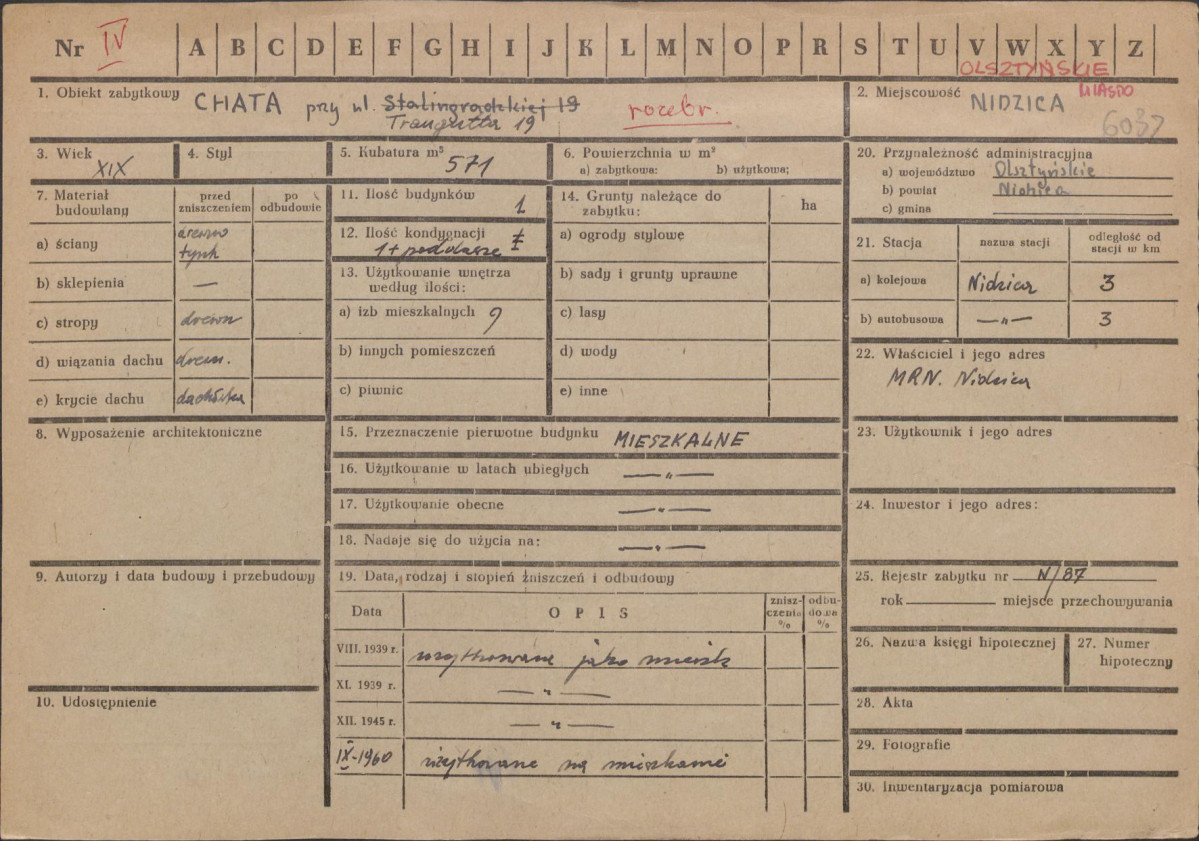 Nr IV A B C D E F G H I J K L M N O P R S T U V W X Y Z
OLSZTYŃSKIE
1. Obiekt zabytkowy CHATA przy ul. Stalingradzkiej 19
Traugutta 19
rozebr.
2. Miejscowość NIDZICA MIASTO
6037
3. Wiek XIX
4. Styl
5. Kubatura m³ 571
6. Powierzchnia w m²
a) zabytkowa: b) użytkowa:
7. Materiał budowlany
przed zniszczeniem
po odbudowie
a) ściany drewno
tynk
b) sklepienia —
c) stropy drewn
d) wiązania dachu drewn.
e) krycie dachu dachówka
8. Wyposażenie architektoniczne
9. Autorzy i data budowy i przebudowy
10. Udostępnienie
11. Ilość budynków 1
12. Ilość kondygnacji
1 + poddasze
13. Użytkowanie wnętrza
według ilości:
a) izb mieszkalnych 9
b) innych pomieszczeń
c) piwnic
14. Grunty należące do
zabytku: ha
a) ogrody stylowe
b) sady i grunty uprawne
c) lasy
d) wody
e) inne
15. Przeznaczenie pierwotne budynku MIESZKALNE
16. Użytkowanie w latach ubiegłych —〃—
17. Użytkowanie obecne —〃—
18. Nadaje się do użycia na: —〃—
19. Data, rodzaj i stopień zniszczeń i odbudowy
Data OPIS zniszczenia % odbudowa %
VIII. 1939 r. użytkowane jako mieszk
XI. 1939 r. —〃—
XII. 1945 r. —〃—
IX-1960 użytkowane na mieszkanie
20. Przynależność administracyjna
a) województwo Olsztyńskie
b) powiat Nidzica
c) gmina
21. Stacja nazwa stacji odległość od
stacji w km
a) kolejowa Nidzica 3
b) autobusowa —〃— 3
22. Właściciel i jego adres
MRN. Nidzica
23. Użytkownik i jego adres
24. Inwestor i jego adres:
25. Rejestr zabytku nr N/87
rok miejsce przechowywania
26. Nazwa księgi hipotecznej
27. Numer
hipoteczny
28. Akta
29. Fotografie
30. Inwentaryzacja pomiarowa